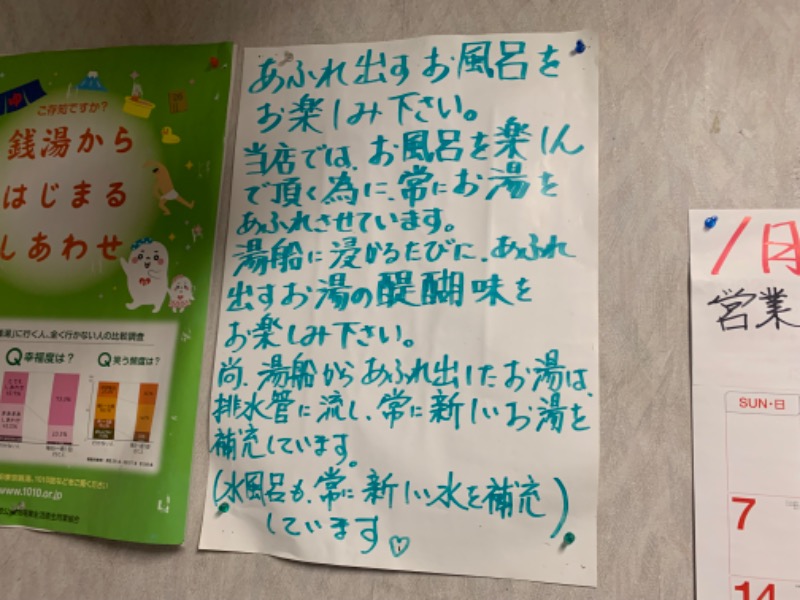 ご存知ですか?
銭湯から
はじまる
しあわせ
に行く人、全く行かない人の比較調査
Q幸福度は?
Q笑う頻度は?
www.1010.or.jp
あふれ出すお風呂を
お楽しみ下さい。
当店では、お風呂を楽しん
で頂く為に、常にお湯を
あふれさせています。
湯船に浸かるたびに、あふれ
出すお湯の醍醐味を
お楽しみ下さい。
尚、湯船からあふれ出したお湯は、
排水管に流し、常に新しいお湯を
補充しています。
(水風呂も、常に新しい水を補充)
しています♡
1月
営業
SUN・日
7
14